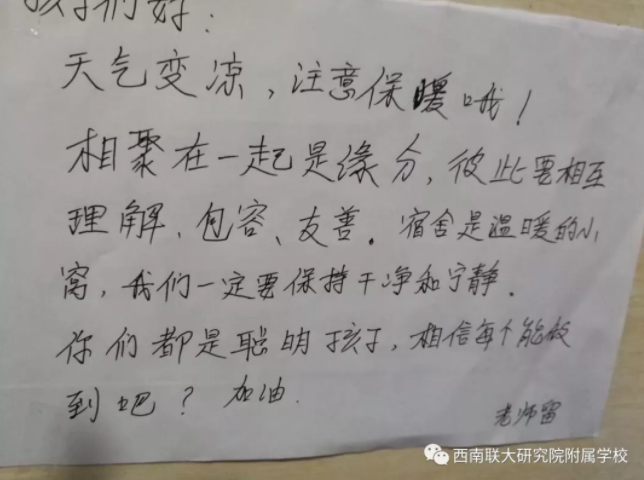 孩子们好:
天气变凉,注意保暖哦!
相聚在一起是缘分,彼此要相互
理解、包容、友善。宿舍是温暖的小
窝,我们一定要保持干净和宁静.
你们都是聪明孩子,相信每个能做
到吧?加油.
老师留
西南联大研究院附属学校